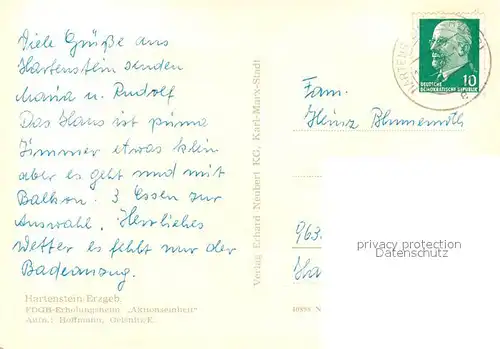 Viele Grüße aus
Hartenstein senden
Maria u. Rudolf
Das Haus ist prima
Zimmer etwas klein
aber es geht und mit
Balkon. 3 Essen zur
Auswahl. Herrliches
Wetter es fehlt nur der
Badeanzug.
Hartenstein-Erzgeb.
FDGB-Erholungsheim „Aktionseinheit"
Aufn.: Hoffmann, Oelsnitz-E.
Verlag Erhard Neubert KG, Karl-Marx-Stadt
10
DEUTSCHE
DEMOKRATISCHE REPUBLIK
Fam.
Heinz Blumenroth
963
privacy protection
Datenschutz
Ha